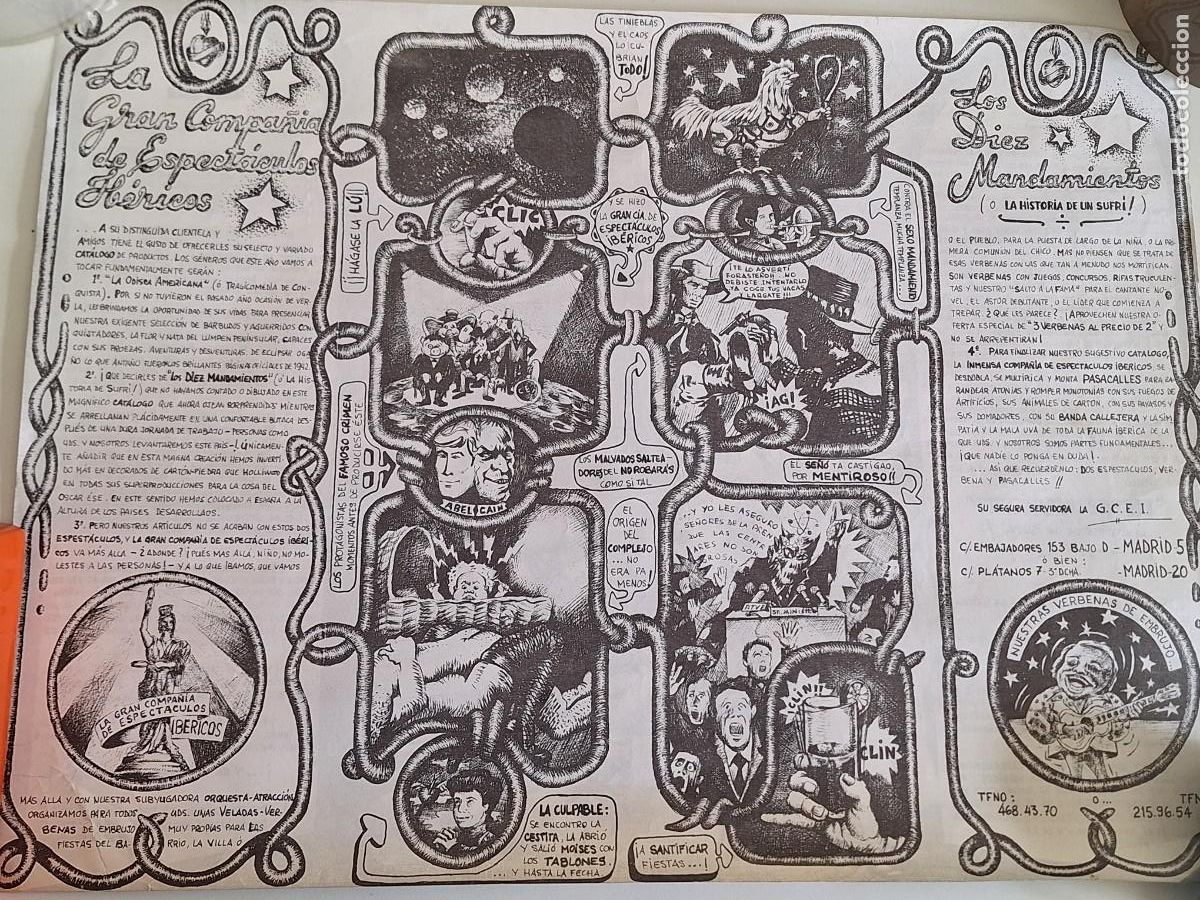 La
Gran Compañia
de Espectáculos
Ibéricos
... A SU DISTINGUIDA CLIENTELA Y
AMIGOS TIENE EL GUSTO DE OFRECERLES SU SELECTO Y VARIADO
CATÁLOGO DE PRODUCTOS. LOS GÉNEROS QUE ESTE AÑO VAMOS A
TOCAR FUNDAMENTALMENTE SERÁN:
1º. "LA ODISEA AMERICANA" (Ó TRAGICOMEDIA DE CON-
QUISTA). POR SI NO TUVIERON EL PASADO AÑO OCASIÓN DE VER-
LA, LES BRINDAMOS LA OPORTUNIDAD DE SUS VIDAS PARA PRESENCIAR
NUESTRA EXIGENTE SELECCIÓN DE BARBUDOS Y AGUERRIDOS CON-
QUISTADORES, LA FLOR Y NATA DEL LUMPEN PENINSULAR, CAPACES
CON SUS PROEZAS, AVENTURAS Y DESVENTURAS, DE ECLIPSAR
LO QUE ANTAÑO FUERON LOS BRILLANTES
2º. ¡QUE DECIRLES DE "LOS DIEZ MANDAMIENTOS" (Ó LA HIS-
TORIA DE SUFRI! ) QUE NO HAYAMOS CONTADO O DIBUJADO EN ESTE
MAGNIFICO CATÁLOGO QUE AHORA OJEAN SORPRENDIDOS MIENTRAS
SE ARRELLANAN PLÁCIDAMENTE EN UNA CONFORTABLE BUTACA DES-
PUÉS DE UNA DURA JORNADA DE TRABAJO - PERSONAS COMO
UDS. Y NOSOTROS LEVANTAREMOS ESTE PAÍS - ÚNICAMEN-
TE AÑADIR QUE EN ESTA MAGNA CREACIÓN HEMOS INVERTI-
DO MÁS EN DECORADOS DE CARTÓN-PIEDRA QUE HOLLIWOOD
EN TODAS SUS SUPERPRODUCCIONES PARA LA COSA DEL
OSCAR ÉSE. EN ESTE SENTIDO HEMOS COLOCADO A ESPAÑA A LA
ALTURA DE LOS PAISES DESARROLLADOS.
3º. PERO NUESTROS ARTICULOS NO SE ACABAN CON ESTOS DOS
ESPECTÁCULOS, Y LA GRAN COMPAÑÍA DE ESPECTÁCULOS IBÉRI-
COS VA MÁS ALLA - ¿ADONDE? ¡PUÉS MAS ALLÁ, NIÑO, NO MO-
LESTES A LAS PERSONAS! - Y A LO QUE IBAMOS, QUE VAMOS
LA GRAN COMPAÑÍA
DE ESPECTACULOS
IBERICOS
MÁS ALLA Y CON NUESTRA SUBYUGADORA ORQUESTA-ATRACCIÓN
ORGANIZAMOS PARA TODOS UDS. UNAS VELADAS-VER-
BENAS DE EMBRUJO MUY PROPIAS PARA LAS
FIESTAS DEL BARRIO, LA VILLA Ó
LAS TINIEBLAS
Y EL CAOS
LO CU-
BRIAN
TODO!
¡¡HAGASE LA LÚ!!
CLIC
Y SE HIZO
LA GRAN CIA. DE
ESPECTÁCULOS
IBÉRICOS
CONTRA EL SEXO MANDAMIENTO
¡TE LO ADVERTÍ
FORASTERO!... NO
DEBISTE INTENTARLO
YA COGE TUS VACAS
LARGATE!!!
¡AG!
LOS PROTAGONISTAS DEL FAMOSO CRIMEN
MOMENTOS ANTES DE PRODUCIRSE ÉSTE
ABEL CAIN
LOS MALVADOS SALTEA-
DORES DEL NO ROBARÁS
COMO SI TAL
EL SEÑO TA CASTIGAO,
POR MENTIROSO!!
EL
ORIGEN
DEL
COMPLEJO
... NO
ERA PA
MENOS!
...Y YO LES ASEGURO
SEÑORES DE LA PREN
QUE LAS CENTR
ARES NO SON
ROSAS
RTVE
SR. MINIST
LA CULPABLE:
SE ENCONTRO LA
CESTITA, LA ABRIÓ
Y SALIÓ MOISES CON
LOS TABLONES...
... Y HASTA LA FECHA
¡A SANTIFICAR
FIESTAS...!
CLIN!!
CLIN
Los
Diez
Mandamientos
( O LA HISTORIA DE UN SUFRI! )
O EL PUEBLO, PARA LA PUESTA DE LARGO DE LA NIÑA O LA PRI-
MERA COMUNIÓN DEL CHICO. MAS NO PIENSEN QUE SE TRATA DE
ESAS VERBENAS CON LAS QUE TAN A MENUDO NOS MORTIFICAN.
SON VERBENAS CON JUEGOS, CONCURSOS, RIFAS TRUCULEN-
TAS Y NUESTRO "SALTO A LA FAMA" PARA EL CANTANTE NO-
VEL, EL ASTOR DEBUTANTE, O EL LÍDER QUE COMIENZA A
TREPAR. ¿QUE LES PARECE? ¡APROVECHEN NUESTRA O-
FERTA ESPECIAL DE "3 VERBENAS AL PRECIO DE 2" Y
NO SE ARREPENTIRAN!
4º. PARA FINALIZAR NUESTRO SUGESTIVO CATÁLOGO,
LA INMENSA COMPAÑIA DE ESPECTACULOS IBERICOS, SE
DESDOBLA, SE MULTIPLICA Y MONTA PASACALLES PARA
RANDEAR ATONIAS Y ROMPER MONOTONIAS CON SUS FUEGOS DE
ARTIFICIOS, SUS ANIMALES DE CARTÓN, CON SUS PAYASOS Y
SUS DOMADORES, CON SU BANDA CALLEJERA Y LA SIM-
PATIA Y LA MALA UVA DE TODA LA FAUNA IBERICA DE LA
QUE UDS. Y NOSOTROS SOMOS PARTES FUNDAMENTALES...
¡QUE NADIE LO PONGA EN DUDA!.
... ASI QUE RECUERDENLO: DOS ESPECTACULOS, VER-
BENA Y PASACALLES!!
SU SEGURA SERVIDORA LA G.C.E.I.
C/. EMBAJADORES 153 BAJO D - MADRID-5
Ó BIEN:
C/. PLÁTANOS 7 5º DCHA. - MADRID-20
NUESTRAS VERBENAS DE EMBRUJO.
TFNO: O... TFN
468.43.70 215.96.54
todocoleccion